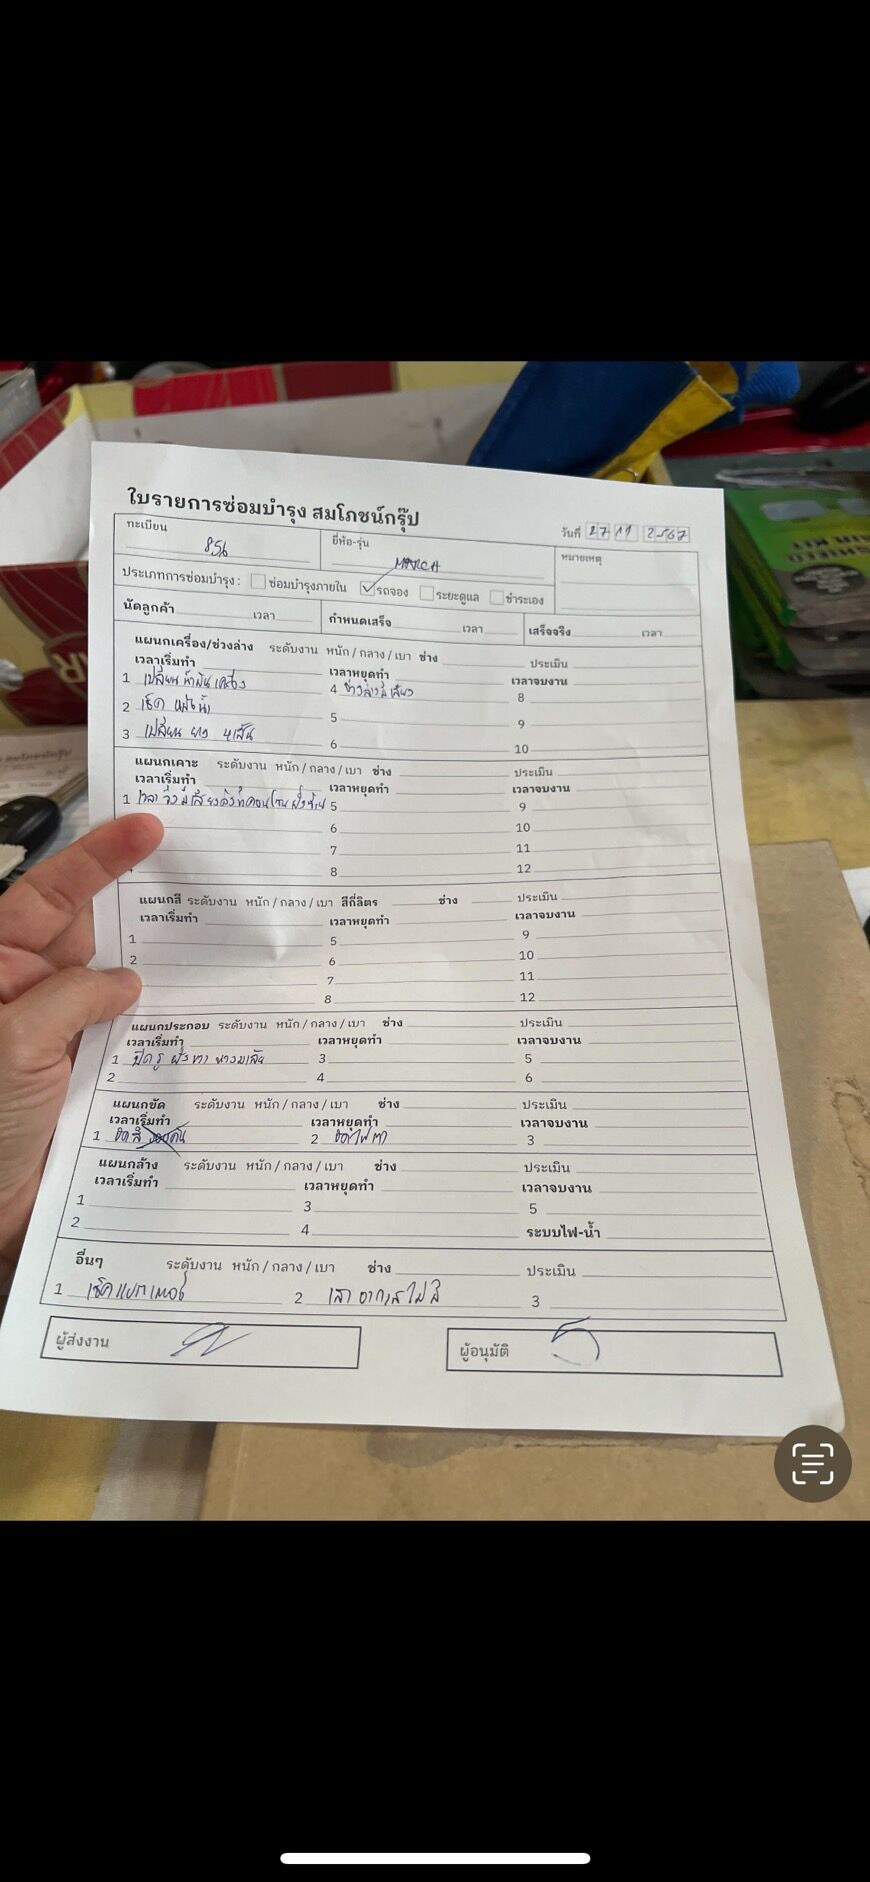 ใบรายการซ่อมบำรุง สมโภชน์กรุ๊ป
วันที่ 27 11 2567
ทะเบียน 856 ยี่ห้อ-รุ่น MARCH หมายเหตุ
ประเภทการซ่อมบำรุง : ซ่อมบำรุงภายใน รถจอง ระยะดูแล ชำระเอง
นัดลูกค้า เวลา กำหนดเสร็จ เวลา เสร็จจริง เวลา
แผนกเครื่อง/ช่วงล่าง ระดับงาน หนัก / กลาง / เบา ช่าง ประเมิน
เวลาเริ่มทำ เวลาหยุดทำ เวลาจบงาน
1 เปลี่ยนน้ำมันเครื่อง 4 ช่วงล่างมีเสียง 8
2 เช็ค หม้อน้ำ 5 9
3 เปลี่ยน ยาง 4 เส้น 6 10
แผนกเคาะ ระดับงาน หนัก / กลาง / เบา ช่าง ประเมิน
เวลาเริ่มทำ เวลาหยุดทำ เวลาจบงาน
1 เวลา วิ่งมีเสียงดังที่คอนโซน ฝั่งซ้าย 5 9
6 10
7 11
8 12
แผนกสี ระดับงาน หนัก / กลาง / เบา สีกี่ลิตร ช่าง ประเมิน
เวลาเริ่มทำ เวลาหยุดทำ เวลาจบงาน
1 5 9
2 6 10
7 11
8 12
แผนกประกอบ ระดับงาน หนัก / กลาง / เบา ช่าง ประเมิน
เวลาเริ่มทำ เวลาหยุดทำ เวลาจบงาน
1 ปิดรู ฝั่งขวา 3 5
2 4 6
แผนกขัด ระดับงาน หนัก / กลาง / เบา ช่าง ประเมิน
เวลาเริ่มทำ เวลาหยุดทำ เวลาจบงาน
1 ขัดสี 2 ขัดไฟตา 3
แผนกล้าง ระดับงาน หนัก / กลาง / เบา ช่าง ประเมิน
เวลาเริ่มทำ เวลาหยุดทำ เวลาจบงาน
1 3 5
2 4 ระบบไฟ-น้ำ
อื่นๆ ระดับงาน หนัก / กลาง / เบา ช่าง ประเมิน
1 เช็คแบตเตอรี่ 2 เสาอากาศไม่มี 3
ผู้ส่งงาน ผู้อนุมัติ